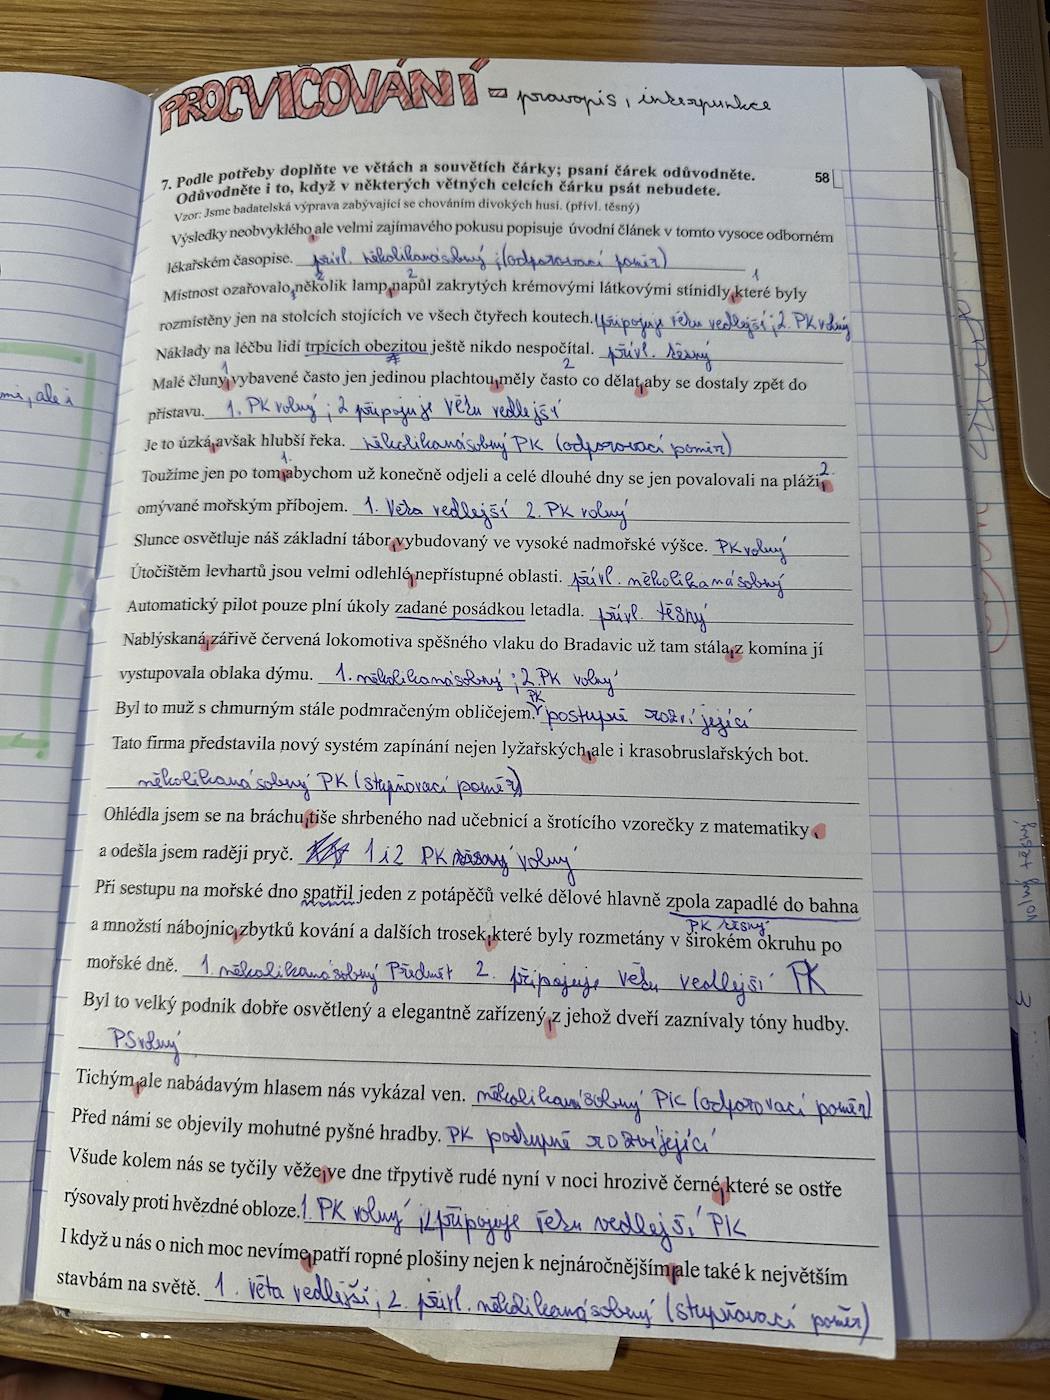 PROCVIČOVÁNÍ - pravopis, interpunkce
7. Podle potřeby doplňte ve větách a souvětích čárky; psaní čárek odůvodněte.
58
Odůvodněte i to, když v některých větných celcích čárku psát nebudete.
Vzor: Jsme badatelská výprava zabývající se chováním divokých husí. (přívl. těsný)
Výsledky neobvyklého, ale velmi zajímavého pokusu popisuje úvodní článek v tomto vysoce odborném
lékařském časopise. přívl. několikanásobný, (odporovací poměr)
2 2 1
Místnost ozařovalo, několik lamp, napůl zakrytých krémovými látkovými stínidly, které byly
rozmístěny jen na stolcích stojících ve všech čtyřech koutech. 1. připojuje větu vedlejší; 2. PK volný
Náklady na léčbu lidí trpících obezitou ještě nikdo nespočítal. přívl. těsný
mi, ale i
1 2
Malé čluny, vybavené často jen jedinou plachtou, měly často co dělat, aby se dostaly zpět do
přístavu. 1. PK volný; 2 připojuje větu vedlejší
Je to úzká, avšak hlubší řeka. několikanásobný PK (odporovací poměr)
1. 2.
Toužíme jen po tom, abychom už konečně odjeli a celé dlouhé dny se jen povalovali na pláži,
omývané mořským příbojem. 1. Věta vedlejší 2. PK volný
Slunce osvětluje náš základní tábor, vybudovaný ve vysoké nadmořské výšce. PK volný
Útočištěm levhartů jsou velmi odlehlé, nepřístupné oblasti. přívl. několikanásobný
Automatický pilot pouze plní úkoly zadané posádkou letadla. přívl. těsný
Nablýskaná, zářivě červená lokomotiva spěšného vlaku do Bradavic už tam stála, z komína jí
vystupovala oblaka dýmu. 1. několikanásobný; 2. PK volný
PK
Byl to muž s chmurným stále podmračeným obličejem. postupně rozvíjející
Tato firma představila nový systém zapínání nejen lyžařských, ale i krasobruslařských bot.
několikanásobný PK (stupňovací poměr)
Ohlédla jsem se na bráchu, tiše shrbeného nad učebnicí a šrotícího vzorečky z matematiky,
a odešla jsem raději pryč. 1 i 2 PK volný
Při sestupu na mořské dno spatřil jeden z potápěčů velké dělové hlavně zpola zapadlé do bahna
PK těsný
a množství nábojnic, zbytků kování a dalších trosek, které byly rozmetány v širokém okruhu po
mořské dně. 1. několikanásobný Předmět 2. připojuje větu vedlejší PK
Byl to velký podnik dobře osvětlený a elegantně zařízený, z jehož dveří zaznívaly tóny hudby.
PS volný
Tichým, ale nabádavým hlasem nás vykázal ven. několikanásobný PK (odporovací poměr)
Před námi se objevily mohutné pyšné hradby. PK postupně rozvíjející
Všude kolem nás se tyčily věže, ve dne třpytivě rudé nyní v noci hrozivě černé, které se ostře
rýsovaly proti hvězdné obloze. 1. PK volný, 2 připojuje větu vedlejší PK
I když u nás o nich moc nevíme, patří ropné plošiny nejen k nejnáročnějším, ale také k největším
stavbám na světě. 1. věta vedlejší; 2. přívl. několikanásobný (stupňovací poměr)
volný těsný
3